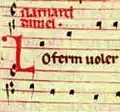 Narnard
daniel.
Lo ferm uoler